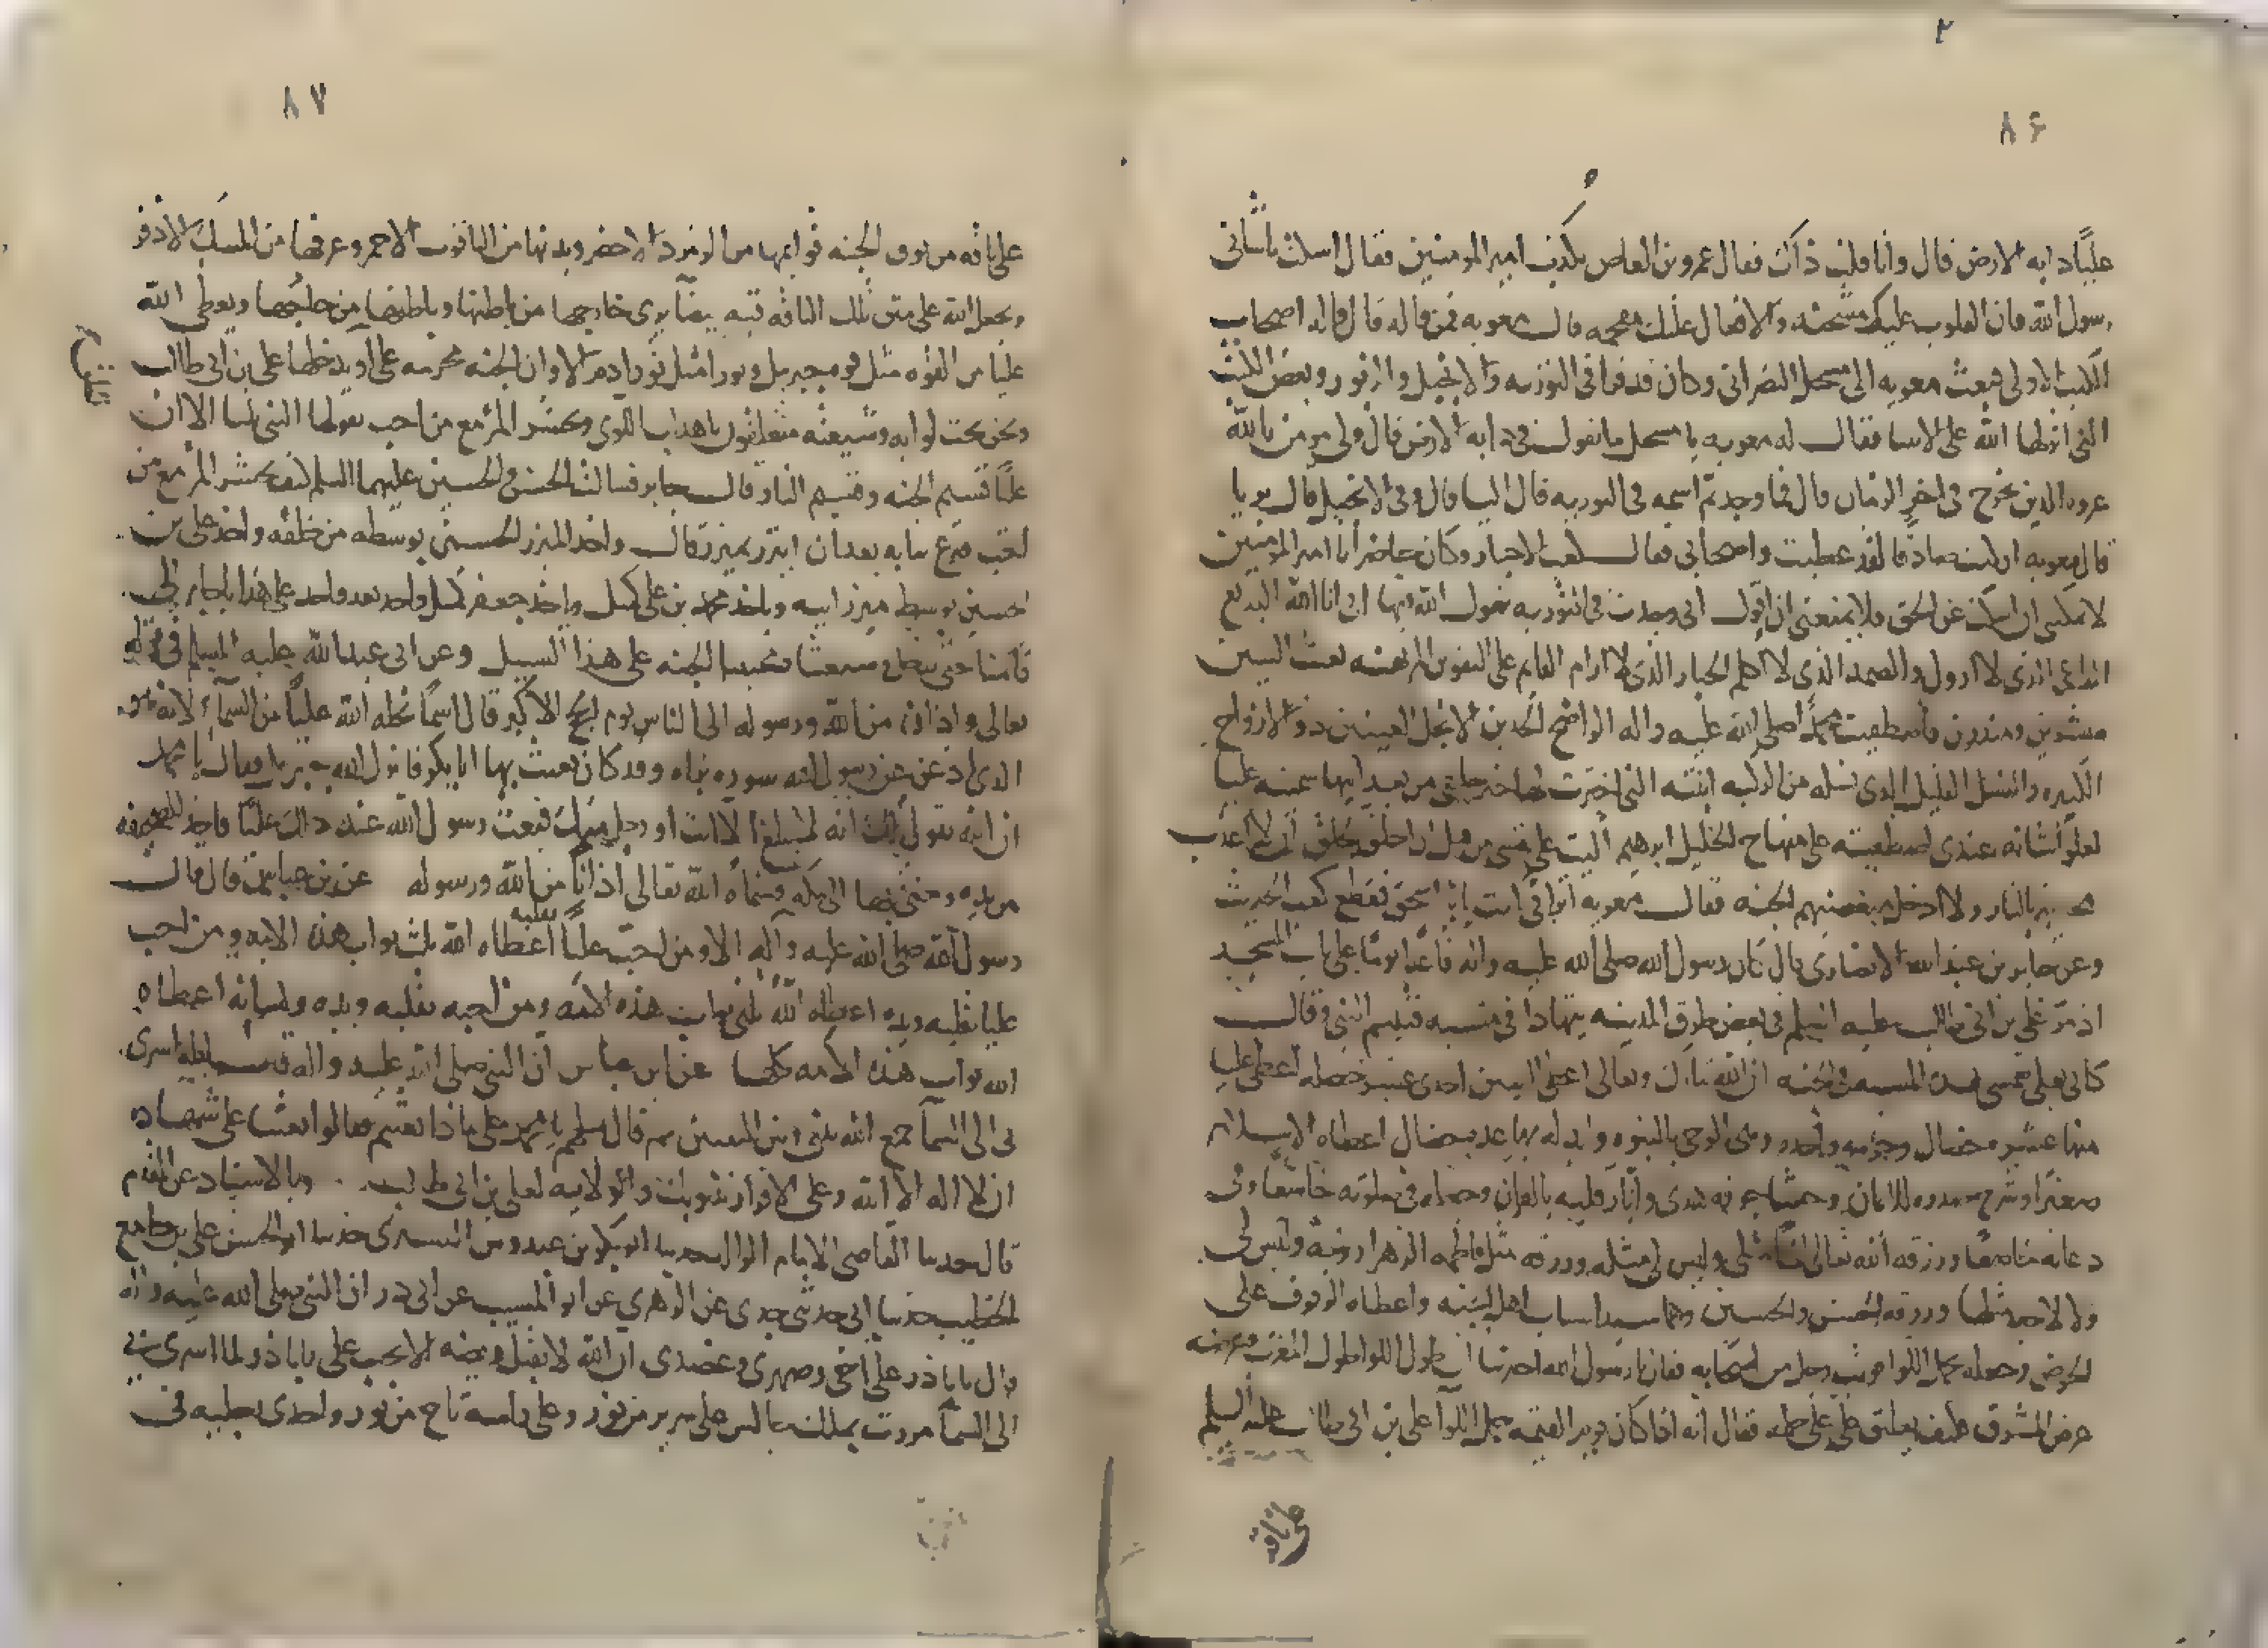 ٢
٨۶
عليا دابه الارض قال وانا قلت ذاك فقال عمرو بن العاص يكذب امير المومنين فقال اسكت ياشانى
رسول الله فان القلوب عليك مشحنه والافعال عليك معجمه قال معويه فمن قاله قال قاله اصحاب
الكتب الاولى فبعث معويه الى مسحل النصرانى وكان قد قرا فى التوريه والانجيل والزبور وبعض الكتب
التى انزلها الله على الانبيا فقال له معويه يا مسحل ما تقول فى دابه الارض قال ولى مومن بالله
عروه الدين يخرج فى اخر الزمان قال فما وجدتم اسمه فى التوريه قال اليا قال وفى الانجيل قال بريا
قال معويه ان كنت صادقا لقد عطبت واصحابى فقال كعب الاحبار وكان حاضرا يا امير المومنين
لا يمكننى ان اسكت عن الحق ولا يمنعنى ان اقول انى وجدت فى التوريه يقول الله فيها انى انا الله البديع
الداعى الذى لا ازول والصمد الذى لا اظلم الجبار الذى لا ارام القايم على النفوس المرتهنه بعثت النبيين
مبشرين ومنذرين فاصطفيت محمدا صلى الله عليه واله الواضح الخدين الانجل العينين ذو الازواج
الكثيره والنسل القليل الذى نسله من الزكيه ابنته التى اخترت لها خير خلقى من بعد ابيها سميته عليا
لعلو شانه عندى اصطفيته على منهاج الخليل ابرهيم اليت على نفسى من قبل ان اخلق خلقى ان لا اعذب
محبيه بالنار ولا ادخل مبغضيهم الجنه فقال معويه انك انت احمق فقطع كعب الحديث
وعن جابر بن عبد الله الانصارى قال كان رسول الله صلى الله عليه واله قاعدا يوما على باب المسجد
اذ مر على بن ابى طالب عليه السلم فى بعض طرق المدينه يتهادا فى مشيه فتبسم النبى وقال
كانى بعلى يمشى هذه المشيه فى الجنه ان الله تبارك وتعالى اعطى النبيين احدى عشر خصله اعطى عليا
منها عشر خصال وحرمه واحده وهى الوحى بالنبوه وابدله بها عده خصال اعطاه الاسلام
صغيرا وشرح صدره للايمان وحشا جوفه هدى وانار قلبه بالقران وجعله فى صلوته خاشعا وفى
دعائه خاضعا ورزقه الله تعالى اخا مثلى وليس لى مثله ورزقه مثل فاطمه الزهرا زوجه وليس لى
ولا لاحد مثلها ورزقه الحسن والحسين وهما سيدا شباب اهل الجنه واعطاه الوقوف على
الحوض وجعله يحمل اللوا فوثب رجل من اصحابه فقال يا رسول الله اخبرتنا ان طول اللوا طول المغرب وعرضه
عرض المشرق فكيف يطيق على على حمله فقال انه اذا كان يوم القيمه يحمل اللوا على بن ابى طالب عليه السلم
على ناقه
٨٧
على ناقه من نوق الجنه قوايمها من الزمرد الاخضر وبدنها من الياقوت الاحمر وعرفها من المسك الاذفر
ويجعل الله على متن تلك الناقه قبه بيضا يرى خارجها من باطنها وباطنها من خارجها ويعطى الله
عليا من القوه مثل قوه جبريل ونورا مثل نور ادم الا وان الجنه محرمه على او يدخلها على بن ابى طالب
ونحن تحت لوايه وشيعته متعلقون باهداب اللوى ويحشر المرء مع من احب يقولها النبى ثلثا الا ان
عليا قسيم الجنه وقسيم النار قال جابر فسالنا الحسن والحسين عليهما السلم كيف يحشر المرء مع من
احسين بوسط ميزر ابيه وياخذ محمد بن على كذلك وياخذ جعفر كذلك واحد بعد واحد على هذا يا جابر الى
تعالى واذان من الله ورسوله الى الناس يوم الحج الاكبر قال اسما نحله الله عليا من السماء لانه هو
الذى اذن عن رسول الله سوره براه وقد كان بعث بها ابا بكر فانزل الله جبريل فقال يا محمد
ان الله يقول لك انه لا يبلغ الا انت او رجل منك فبعث رسول الله عند ذلك عليا فاخذ الصحيفه
من يده ومضى بها الى مكه فسماه الله تعالى اذانا من الله ورسوله عن ابن عباس قال قال
رسول الله صلى الله عليه واله الا ومن احب عليا بقلبه اعطاه الله ثلث ثواب هذه الامه ومن احب
عليا بقلبه ويده اعطاه الله ثلثى ثواب هذه الامه ومن احبه بقلبه ويده ولسانه اعطاه
الله ثواب هذه الامه كلها عن ابن عباس ان النبى صلى الله عليه واله قال ليله اسرى
بى الى السما جمع الله بينى وبين النبيين ثم قال سلهم يا محمد على ماذا بعثتم فقالوا بعثنا على شهاده
ان لا اله الا الله وعلى الاقرار بنبوتك والولايه لعلى بن ابى طالب وبالاسناد عن المقدم
قال حدثنا القاضى الامام
الخطيب حدثنا ابى حدثنى جدى عن الزهرى عن ابن المسيب عن ابى ذر ان النبى صلى الله عليه واله
قال يا ابا ذر على اخى وصهرى وعضدى ان الله لا يقبل فريضه الا بحب على يا ابا ذر لما اسرى بى
الى السما مررت بملك جالس على سرير من نور وعلى راسه تاج من نور واحدى رجليه فى